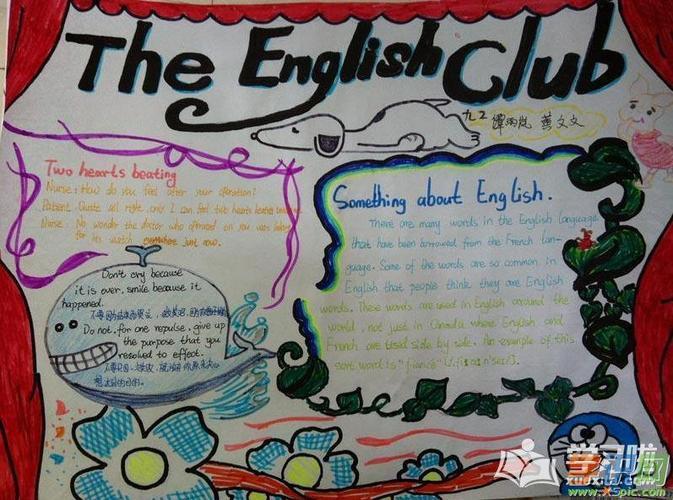 The English Club
九2 谭雨岚 黄文文
Two hearts beating
Nurse: How do you feel after your operation?
Patient: Quite all right, only I can feel two hearts beating
Nurse: No wonder the doctor who operated on you was looking
for his watch just now.
Don't cry because
it is over, smile because it
happened.
Do not, for one repulse, give up
the purpose that you
resolved to effect.
Something about English.
There are many words in the English language
that have been borrowed from the French lan-
guage. Some of the words are so common in
English that people think they are English
words. These words are used in English around the
world, not just in Canada where English and
French are used side by side. An example of this
sort word is "fiancé"
学习啦
xuexila.com
www.x5pic.com